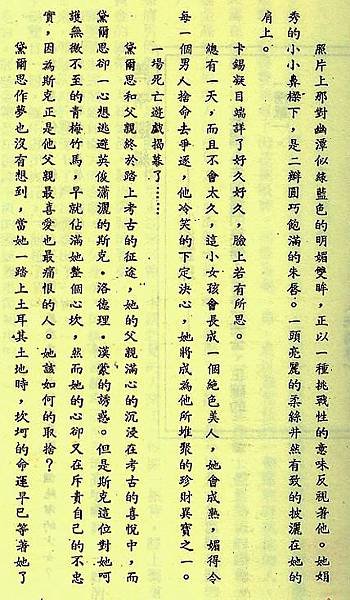 照片上那對幽潭似綠藍色的明媚雙眸，正以一種挑戰性的意味反視著他。她娟
秀的小小鼻樑下，是二瓣圓巧飽滿的朱唇。一頭亮麗的柔絲井然有致的披灑在她的
肩上。
卡錫凝目端詳了好久好久，臉上若有所思。
總有一天，而且不會太久，這小女孩會長成一個絕色美人，她會成熟，媚得令
每一個男人捨命去爭逐，他冷笑的下定決心，她將成為他所堆聚的珍財異寶之一。
一場死亡遊戲揭幕了……
黛爾思和父親終於踏上考古的征途，她的父親滿心的沉浸在考古的喜悅中，而
黛爾思卻一心想逃避英俊瀟灑的斯克．洛德理．漢蒙的誘惑。但是斯克這位對她呵
護無微不至的青梅竹馬，早就佔滿她整個心坎，然而她的心卻又在斥責自己的不忠
實，因為斯克正是他父親最喜愛也最痛恨的人。她該如何的取捨？
黛爾思作夢也沒有想到，當她一踏上土耳其土地時，坎坷的命運早已等著她了